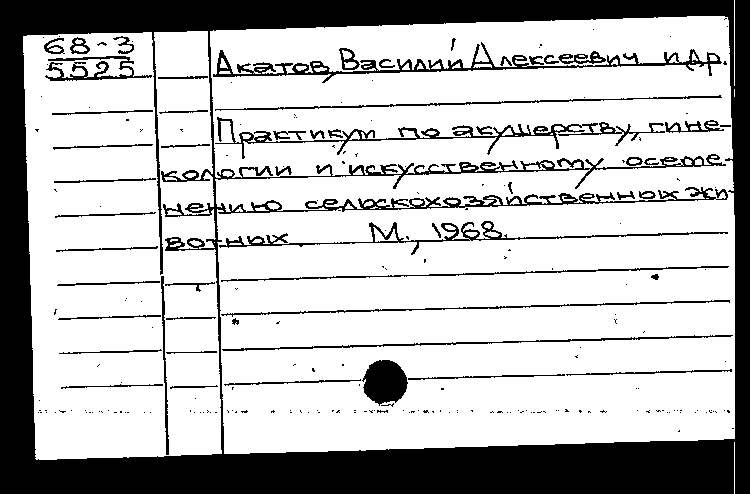 68-3
5525
Акатов, Василий Алексеевич и др.
Практикум по акушерству, гине-
кологии и искусственному осеме-
нению сельскохозяйственных жи-
вотных. М., 1968.